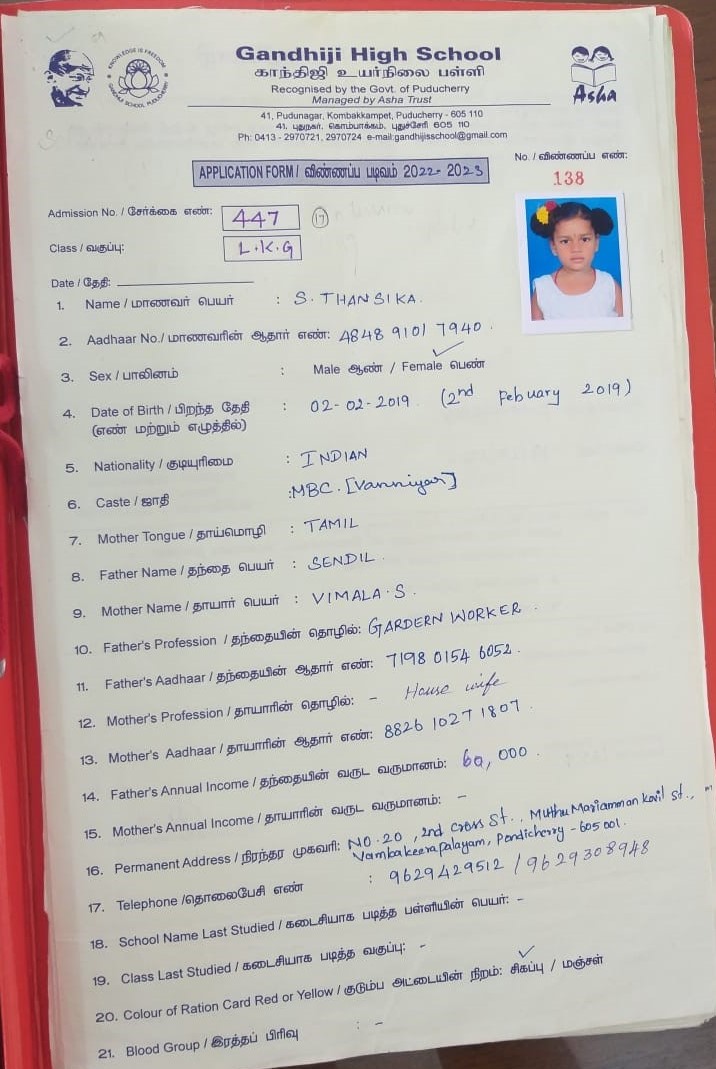 KNOWLEDGE IS FREEDOM
Gandhiji High School
காந்திஜி உயர்நிலை பள்ளி
Recognised by the Govt. of Puducherry
Managed by Asha Trust
Asha
41, Pudunagar, Kombakkampet, Puducherry - 605 110
41, புதுநகர், கொம்பாக்கம், புதுச்சேரி 605 110
Ph: 0413 - 2970721, 2970724 e-mail:gandhijisschool@gmail.com
APPLICATION FORM / விண்ணப்ப படிவம் 2022 - 2023
No. / விண்ணப்ப எண்:
138
Admission No. / சேர்க்கை எண்: 447 17
Class / வகுப்பு: L.K.G
Date / தேதி:
1. Name / மாணவர் பெயர் : S. THANSIKA.
2. Aadhaar No./ மாணவரின் ஆதார் எண்: 4848 9101 7940.
3. Sex / பாலினம் : Male ஆண் / Female பெண்
4. Date of Birth / பிறந்த தேதி : 02-02-2019 (2nd Pebuary 2019)
(எண் மற்றும் எழுத்தில்)
5. Nationality / குடியுரிமை : INDIAN
6. Caste / ஜாதி : MBC. [Vanniyar]
7. Mother Tongue / தாய்மொழி : TAMIL
8. Father Name / தந்தை பெயர் : SENDIL.
9. Mother Name / தாயார் பெயர் : VIMALA.S.
10. Father's Profession / தந்தையின் தொழில்: GARDERN WORKER.
11. Father's Aadhaar / தந்தையின் ஆதார் எண்: 7198 0154 6052.
12. Mother's Profession / தாயாரின் தொழில்: - House wife
13. Mother's Aadhaar / தாயாரின் ஆதார் எண்: 8826 1027 1807.
14. Father's Annual Income / தந்தையின் வருட வருமானம்: 60,000.
15. Mother's Annual Income / தாயாரின் வருட வருமானம்: -
16. Permanent Address / நிரந்தர முகவரி: NO.20, 2nd Cross St., Muthu Mariamman Kovil St.,
Vambakeerapalayam, Pondicherry - 605 001.
17. Telephone /தொலைபேசி எண் : 9629429512 / 9629308948
18. School Name Last Studied / கடைசியாக படித்த பள்ளியின் பெயர்: -
19. Class Last Studied / கடைசியாக படித்த வகுப்பு: -
20. Colour of Ration Card Red or Yellow / குடும்ப அட்டையின் நிறம்: சிகப்பு / மஞ்சள்
21. Blood Group / இரத்தப் பிரிவு : -